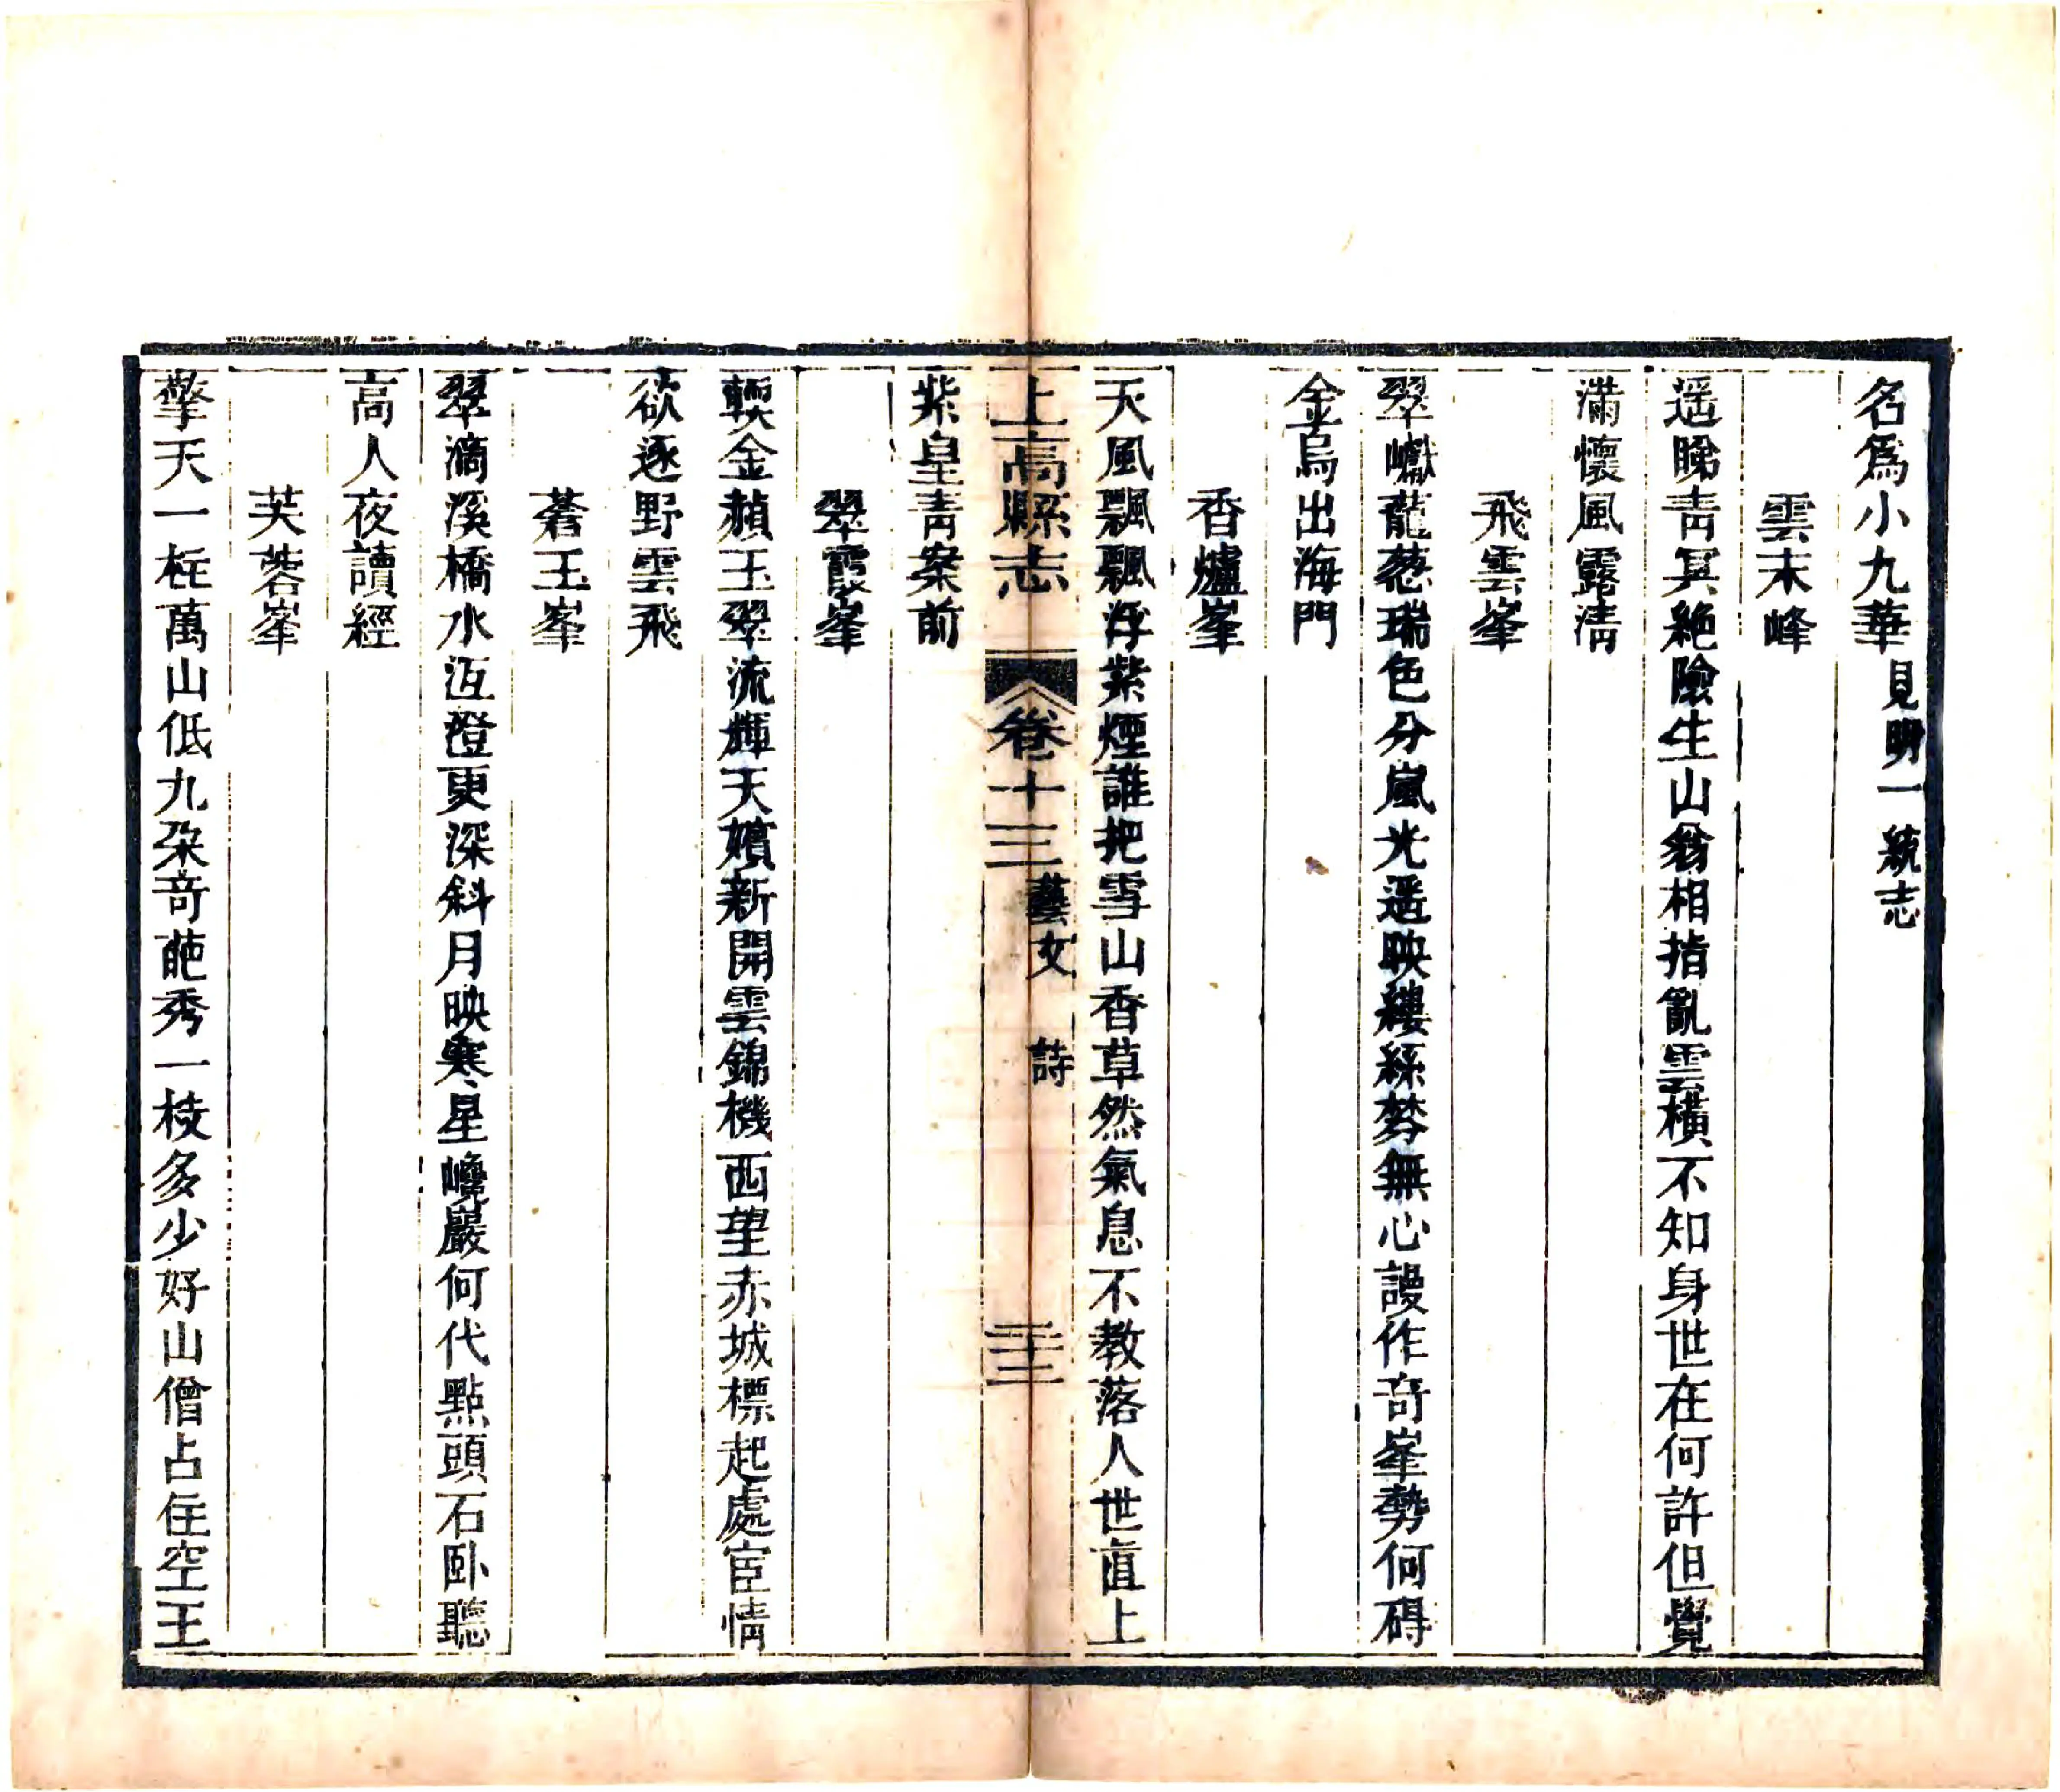 名爲小華見明一統志
雲末峰
遥睇青冥絶險生山翁相指亂雲橫不知身世在何許但覺
滿懷風露清
飛雲峯
翠巘蘢葱瑞色分嵐光遥映縷絲棼無心謾作奇峯勢何碍
金烏出海門
香爐峯
天風飄飄浮紫煙誰把雪山香草然氣息不教落人世直上
上高縣志 卷十三 藝文 詩 三十三
紫皇青案前
翠霞峯
輭金頳玉翠流輝天嬪新開雲錦機西望赤城標起處宦情
欲逐野雲飛
蒼玉峯
翠滴溪橋水沍澄更深斜月映寒星巉巖何代點頭石卧聽
高人夜讀經
芙蓉峯
擎天一柱萬山低九朶奇葩秀一枝多少好山僧占住空王